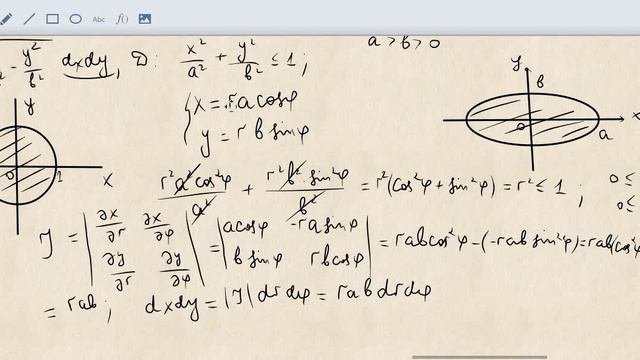 Abc f()
- y²/b² dxdy, D: x²/a² + y²/b² ≤ 1; a > b > 0
{ x = ra cosφ
y = r b sinφ
y
0 1 x
y b
0 a x
r²a²cos²φ/a² + r²b²sin²φ/b² = r²(cos²φ + sin²φ) = r² ≤ 1; 0 ≤
0 ≤
J = | ∂x/∂r ∂x/∂φ ∂y/∂r ∂y/∂φ | = | a cosφ -r a sinφ b sinφ r b cosφ | = rab cos²φ - (-rab sin²φ) = rab(cos²φ
= rab; dxdy = |J| dr dφ = rab dr dφ